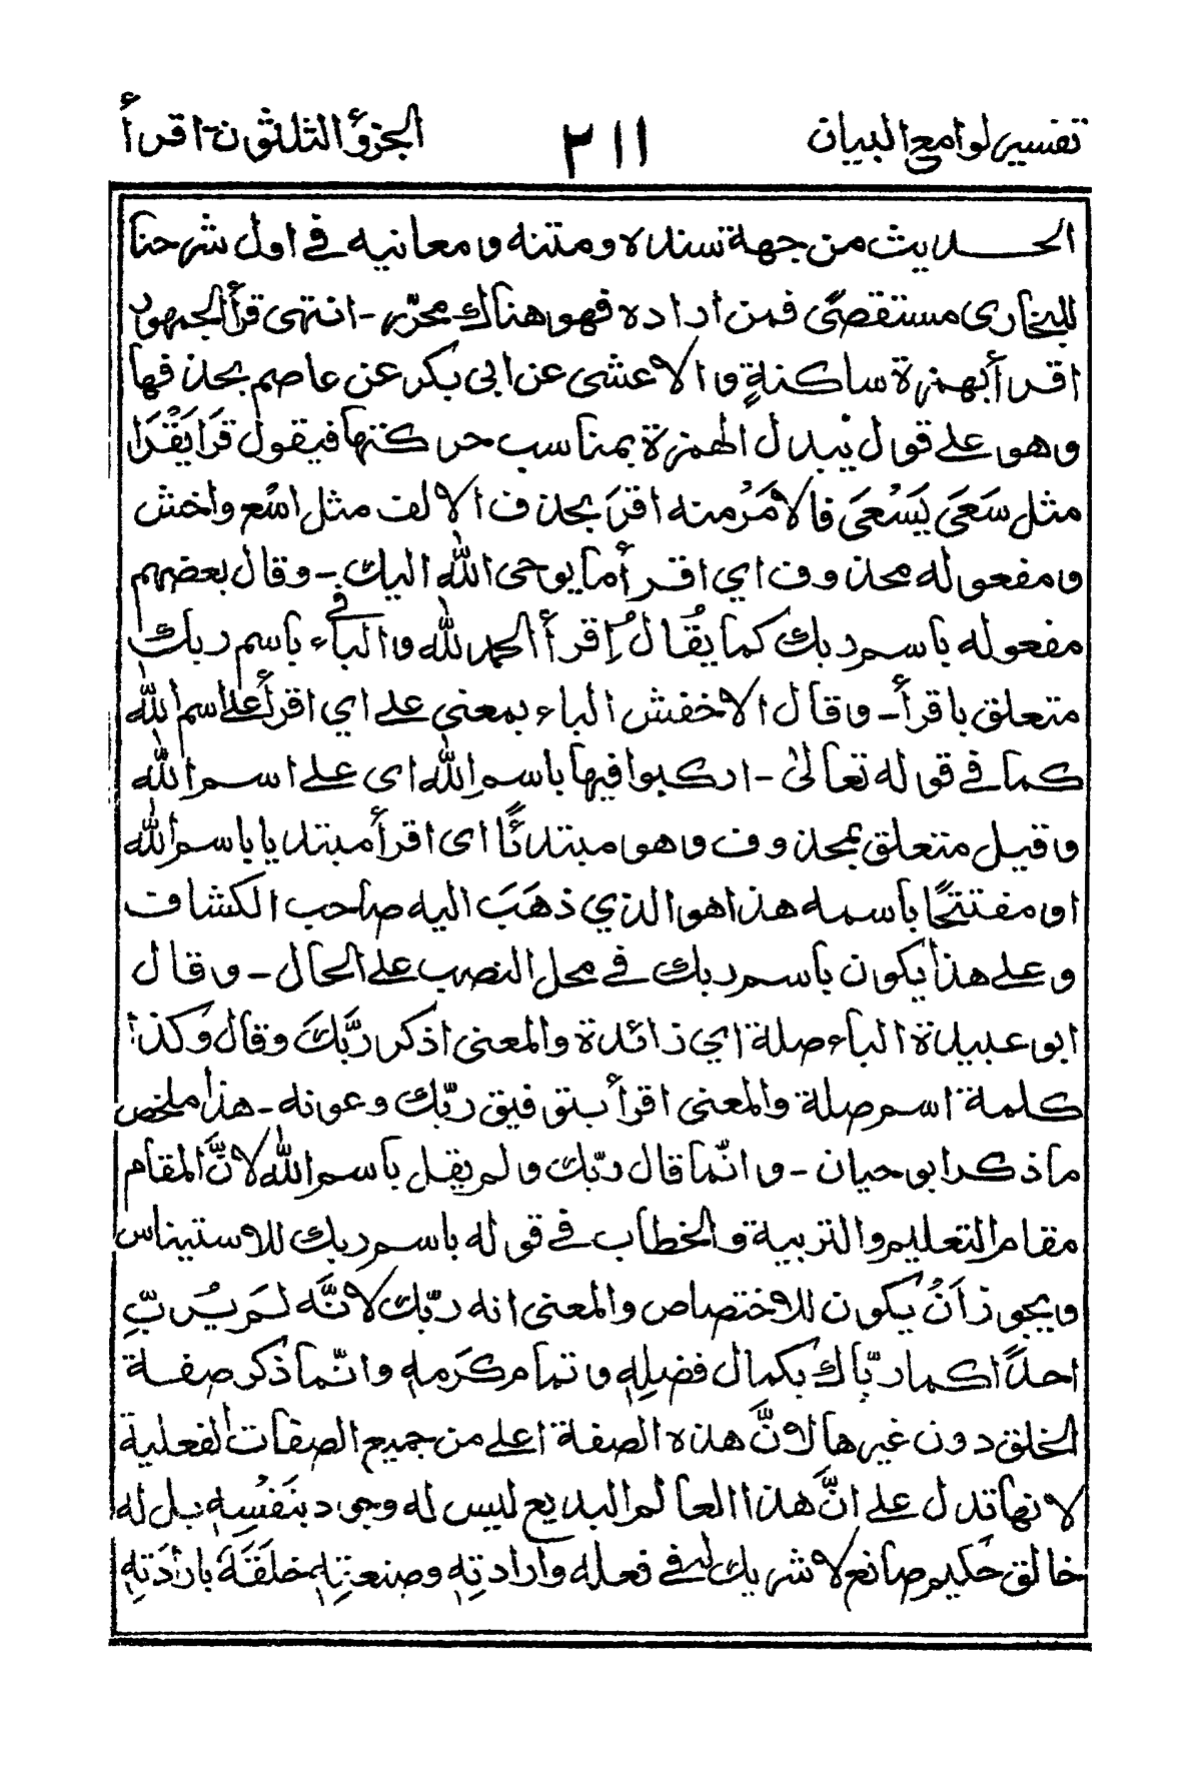 تفسير لوامع البيان ٢١١ الجزؤ الثلثون- اقرأ
الحديث من جهة سنده ومتنه ومعانيه في اول شرحنا
للبخارى مستقصًى فمن اراده فهو هناك محرّر - انتهى قرأ الجمهور
اقرأ بهمزة ساكنةٍ والاعشى عن ابى بكر عن عاصم بحذفها
وهو على قول يبدل الهمزة بمناسب حركتها فيقول قَرَا يَقْرَا
مثل سَعَى يَسْعَى فالامَرُ منه اقرَ بحذف الالف مثل اسْع واخش
ومفعوله محذوف اي اقرأ ما يوحى الله اليك - وقال بعضهم
مفعوله باسم ربك كما يُقال اِقرأ الحمد لله والباء في باسم ربك
متعلق باقرأ - وقال الاخفش الباء بمعنى على اي اقرأ على اسم الله
كما في قوله تعالىٰ - اركبوا فيها باسم الله اى على اسم الله
وقيل متعلق بمحذوف وهو مبتدئًا اى اقرأ مبتديا باسم الله
او مفتتحًا باسمه هذا هوا لذي ذهَبَ اليه صاحب الكشاف
وعلى هذا يكون باسم ربك في محل النصب على الحال - وقال
ابو عبيدة الباء صلة اي زائدة والمعنى اذكر ربَّكَ وقال وكذا
كلمة اسم صلة والمعنى اقرأ بتوفيق ربّك وعونه - هذا ملخص
ما ذكر ابو حيان - و انّما قال ربّك ولم يقل باسم الله لانَّ المقام
مقام التعليم والتربية والخطاب في قوله باسم ربك للاستيناس
ويجوز اَنْ يكون للاختصاص والمعنى انه ربّك لانَّه لَم يُربِّ
احدًا كما ربّاك بكمال فضلِهٖ وتمام كَرَمهٖ وانّما ذكر صفة
الخلق دون غيرها لانَّ هذه الصفة اعلى من جميع الصفات الفعلية
لانها تدل على انَّ هذا العالم البديع ليس له وجود بنَفْسِهٖ بل له
خالق حَكيم صانع لا شريك له في فعله وارادتِهٖ وصنعتِهٖ خلَقَهٗ بارَادَتهٖ